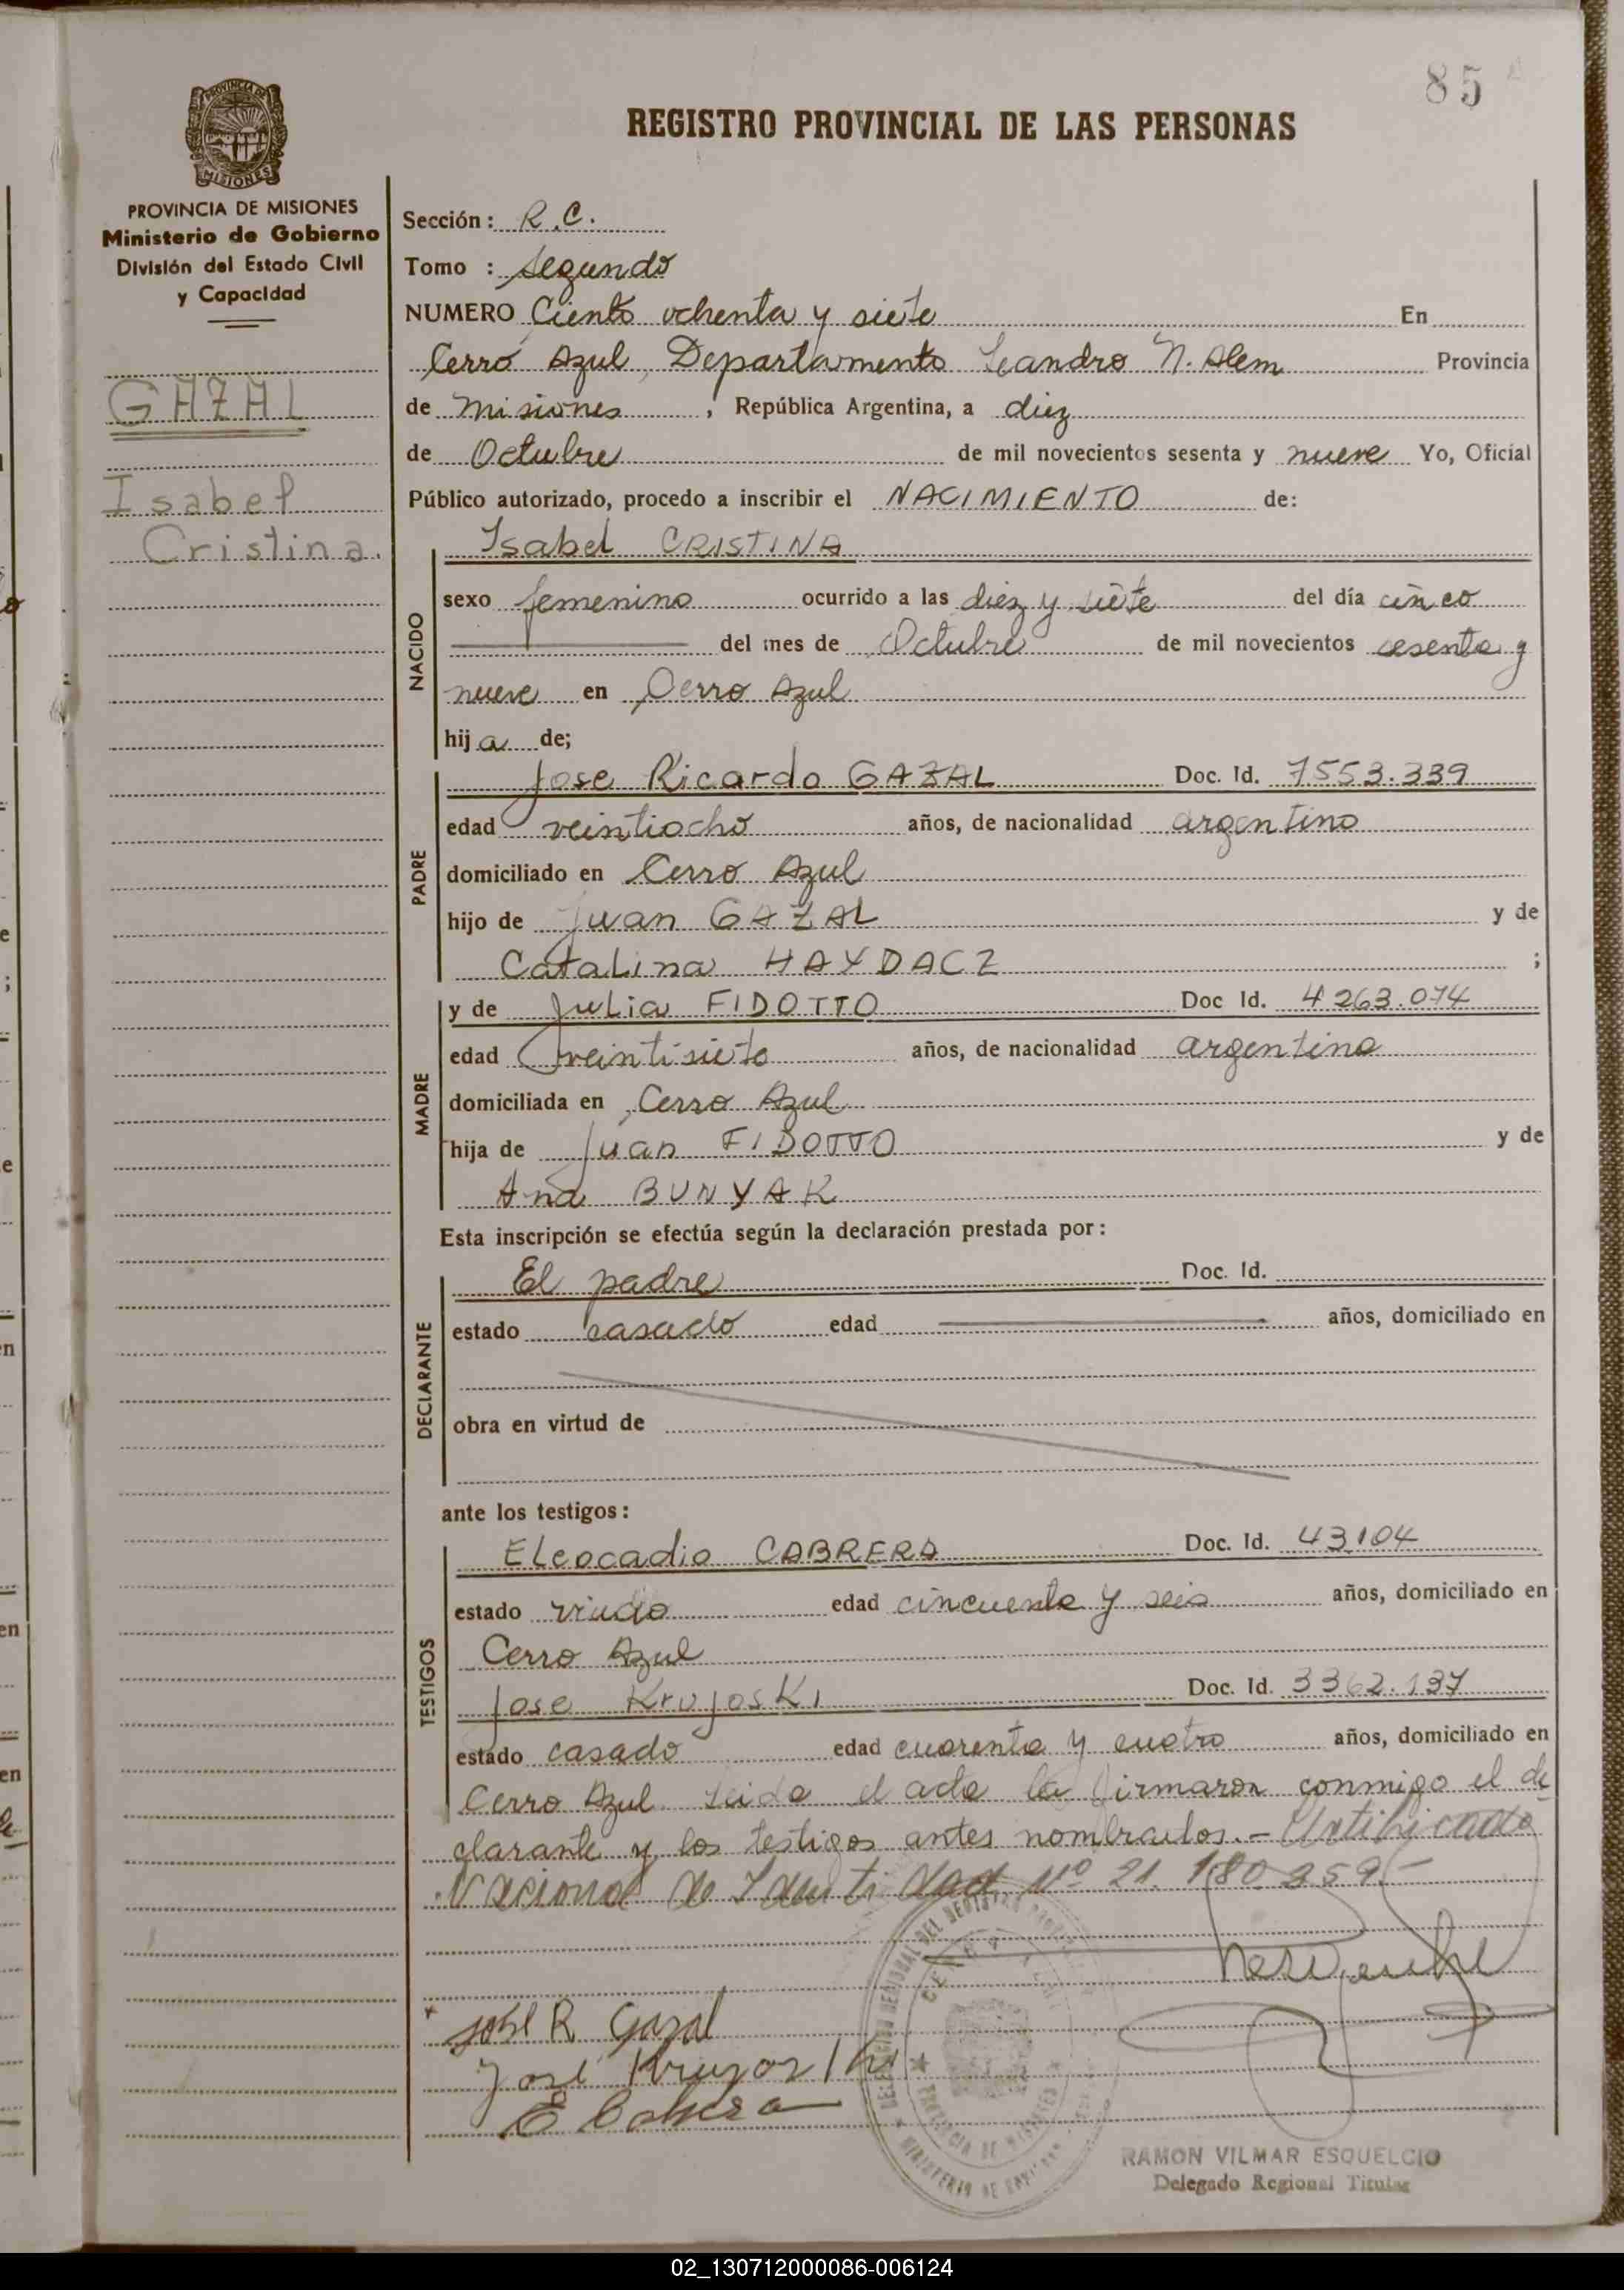 85
REGISTRO PROVINCIAL DE LAS PERSONAS
PROVINCIA DE MISIONES
Ministerio de Gobierno
División del Estado Civil
y Capacidad
GAZAL
Isabel
Cristina.
Sección: R.C.
Tomo : Segundo
NUMERO Ciento ochenta y siete En
Cerro Azul, Departamento Leandro N. Alem Provincia
de Misiones, República Argentina, a diez
de Octubre de mil novecientos sesenta y nueve Yo, Oficial
Público autorizado, procedo a inscribir el NACIMIENTO de:
Isabel CRISTINA
NACIDO
sexo femenino ocurrido a las diez y siete del día cinco
del mes de Octubre de mil novecientos sesenta y
nueve en Cerro Azul
hija de;
PADRE
Jose Ricardo GAZAL Doc. Id. 7553.339
edad veintiocho años, de nacionalidad argentino
domiciliado en Cerro Azul
hijo de Juan GAZAL y de
Catalina HAYDACZ ;
MADRE
y de Julia FIDOTTO Doc Id. 4263.074
edad veintisiete años, de nacionalidad argentina
domiciliada en Cerro Azul
hija de Juan FIDOTTO y de
Ana BUNYAK
Esta inscripción se efectúa según la declaración prestada por:
DECLARANTE
El padre Doc. Id.
estado casado edad años, domiciliado en
obra en virtud de
ante los testigos:
TESTIGOS
Eleocadio CABRERA Doc. Id. 43.104
estado viudo edad cincuenta y seis años, domiciliado en
Cerro Azul
Jose KrujosKi Doc. Id. 3362.137
estado casado edad cuarenta y cuatro años, domiciliado en
Cerro Azul Leida el acta la firmaron conmigo el de
clarante y los testigos antes nombrados.-
Nacional de Identidad Nº 21.180.359.-
José R Gazal
José
E Cabrera
DELEGACION REGIONAL DEL REGISTRO
PROVINCIA DE MISIONES
MINISTERIO DE
RAMON VILMAR ESQUELCIO
Delegado Regional Titular
02_130712000086-006124